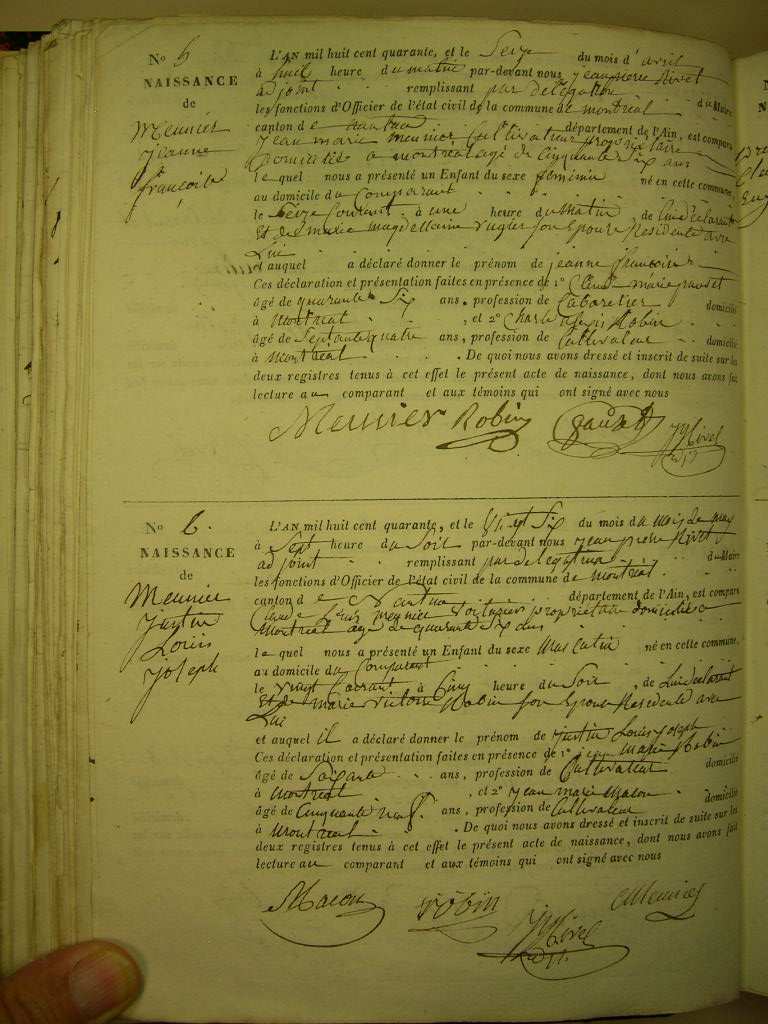 No 5
NAISSANCE
de
Meunier
Jeanne
françoise
L'AN mil huit cent quarante, et le Seize du mois d'avril
à huit heure du matin par-devant nous jean pierre Rivet
adjoint remplissant par délégation
les fonctions d'Officier de l'état civil de la commune de montreal du Maire
canton de nantua département de l'Ain, est comparu
Jean marie meunier Cultivateur propriétaire
Domicilié a montréal agé de Cinquante Six ans
lequel nous a présenté un Enfant du sexe feminin né en cette commune,
au domicile du Comparant
le Seize Courant à une heure du matin, de lui déclarant
Et de marie magdelaine Son Epouse Residente avec
Lui
et auquel a déclaré donner le prénom de jeanne françoise
Ces déclaration et présentation faites en présence de 1° Claude marie gauset
âgé de quarante Six ans, profession de Cabaretier domicilié
à Montreal , et 2° Robin
âgé de Septante quatre ans, profession de Cultivateur domicilié
à montreal . De quoi nous avons dressé et inscrit de suite sur les
deux registres tenus à cet effet le présent acte de naissance, dont nous avons fait
lecture au comparant et aux témoins qui ont signé avec nous
Meunier Robin
No 6.
NAISSANCE
de
Meunier
Justin
Louis
Joseph
L'AN mil huit cent quarante, et le Vingt Six du mois du mois de may
à Sept heure du Soir par-devant nous jean pierre Rivet
adjoint remplissant par délégation du Maire
les fonctions d'Officier de l'état civil de la commune de montréal
canton de Nantua département de l'Ain, est comparu
meunier Voiturier propriétaire domicilié a
Montreal agé de quarante Six ans
lequel nous a présenté un Enfant du sexe Masculin né en cette commune,
au domicile du Comparant
le Vingt Courant à Cinq heure du Soir, de Lui declarant
Et de marie Victoire Robin Son Epouse Residente avec
Lui
et auquel il a déclaré donner le prénom de justin Louis joseph
Ces déclaration et présentation faites en présence de 1° jean Marie Robin
âgé de Soixante ans, profession de Cultivateur domicilié
à Montreal , et 2° Jean marie Macon
âgé de Cinquante neuf ans, profession de Cultivateur domicilié
à Montreal . De quoi nous avons dressé et inscrit de suite sur les
deux registres tenus à cet effet le présent acte de naissance, dont nous avons fait
lecture au comparant et aux témoins qui ont signé avec nous
Macon Robin Meunier